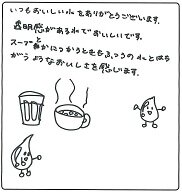 いつもおいしい水をありがとうございます。
透明感がある水でおいしいです。
スープとかにつかうときもふつうの水とはち
がうようなおいしさを感じます。